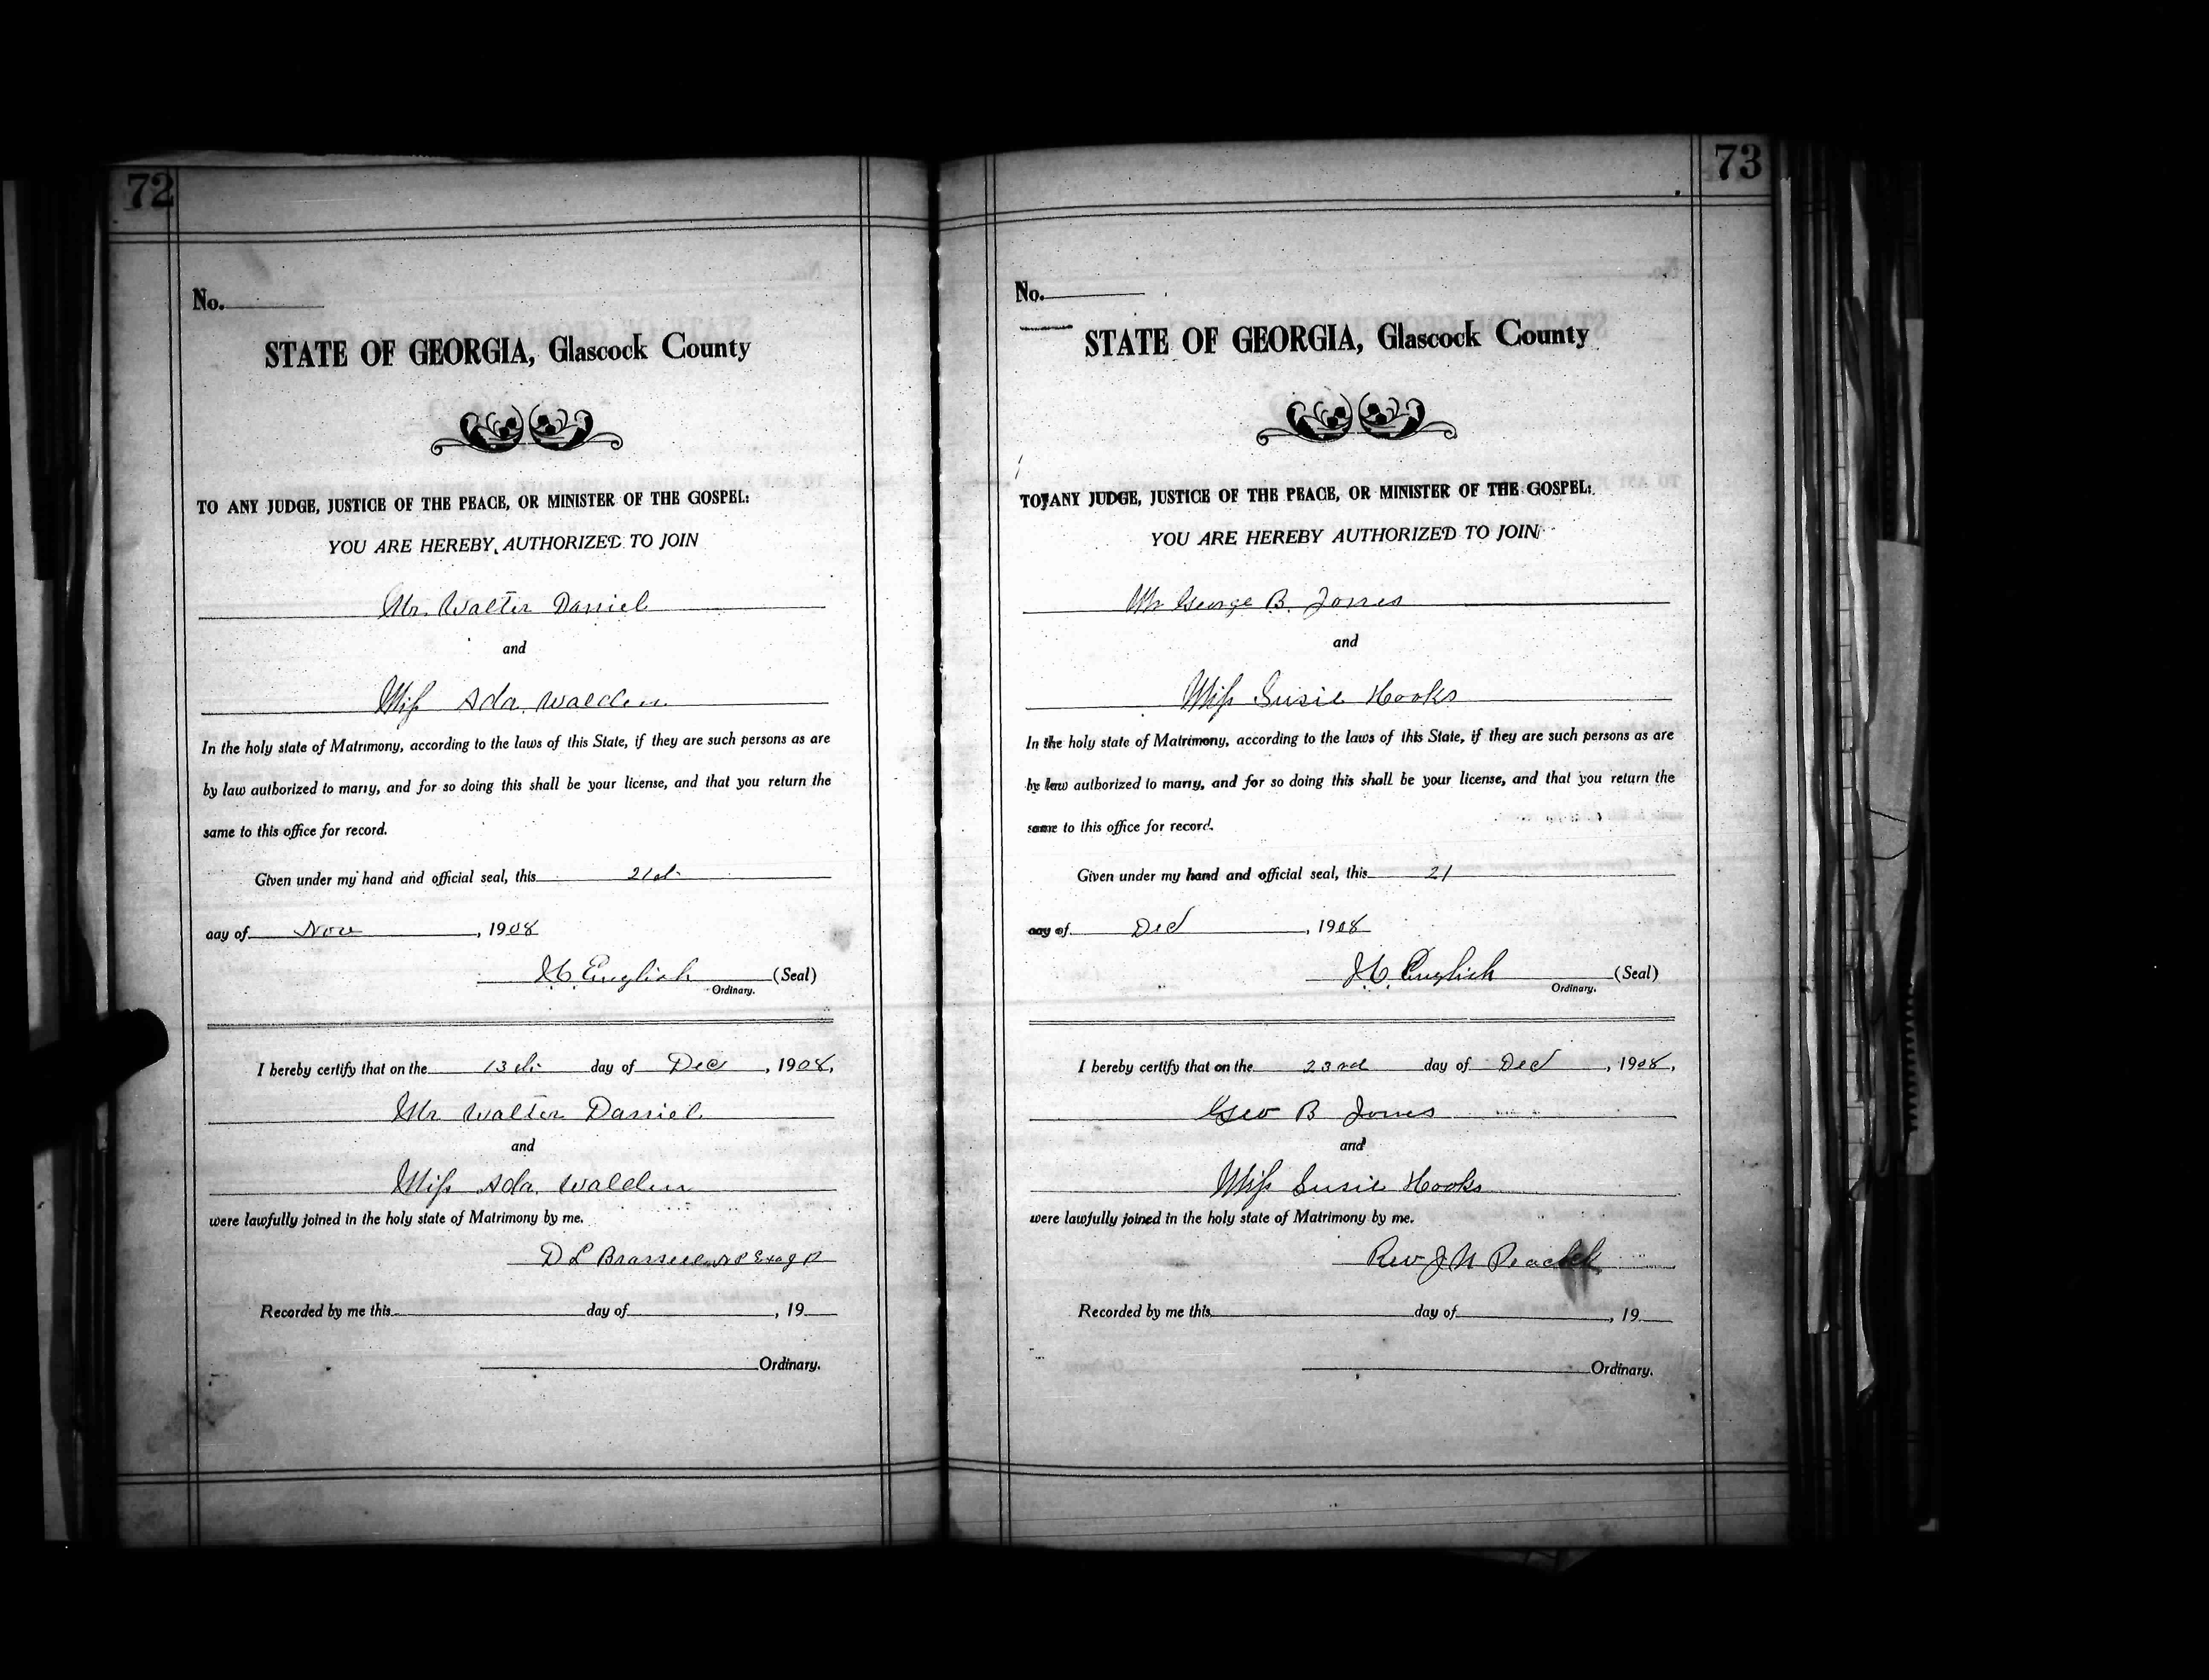 72
No.
STATE OF GEORGIA, Glascock County
TO ANY JUDGE, JUSTICE OF THE PEACE, OR MINISTER OF THE GOSPEL:
YOU ARE HEREBY AUTHORIZED TO JOIN
Mr. Walter Daniel
and
Miss Ada Walden
In the holy state of Matrimony, according to the laws of this State, if they are such persons as are
by law authorized to marry, and for so doing this shall be your license, and that you return the
same to this office for record.
Given under my hand and official seal, this 21st
day of Nov, 1908
J C English (Seal)
Ordinary.
I hereby certify that on the 13th day of Dec, 1908,
Mr Walter Daniel
and
Miss Ada Walden
were lawfully joined in the holy state of Matrimony by me.
D L
Recorded by me this day of , 19
Ordinary.
73
No.
STATE OF GEORGIA, Glascock County
TO ANY JUDGE, JUSTICE OF THE PEACE, OR MINISTER OF THE GOSPEL:
YOU ARE HEREBY AUTHORIZED TO JOIN
Mr George B. Jones
and
Miss Susie Hooks
In the holy state of Matrimony, according to the laws of this State, if they are such persons as are
by law authorized to marry, and for so doing this shall be your license, and that you return the
same to this office for record.
Given under my hand and official seal, this 21
day of Dec, 1908
J. C. English (Seal)
Ordinary.
I hereby certify that on the 23rd day of Dec, 1908,
Geo B Jones
and
Miss Susie Hooks
were lawfully joined in the holy state of Matrimony by me.
Rev J N Peacock
Recorded by me this day of , 19
Ordinary.